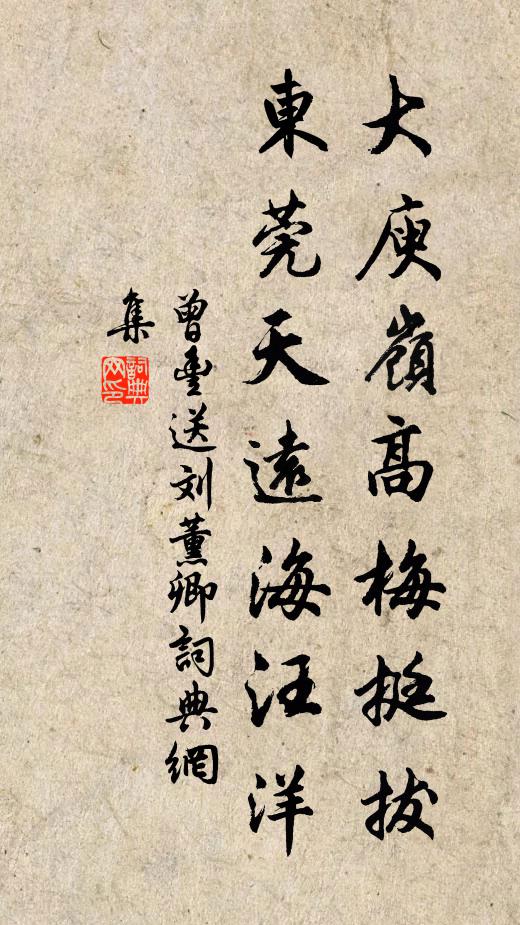 大庾嶺高梅挺拔
東莞天遠海汪洋
曾豐送刘薰卿詞典網
集
詞典网印